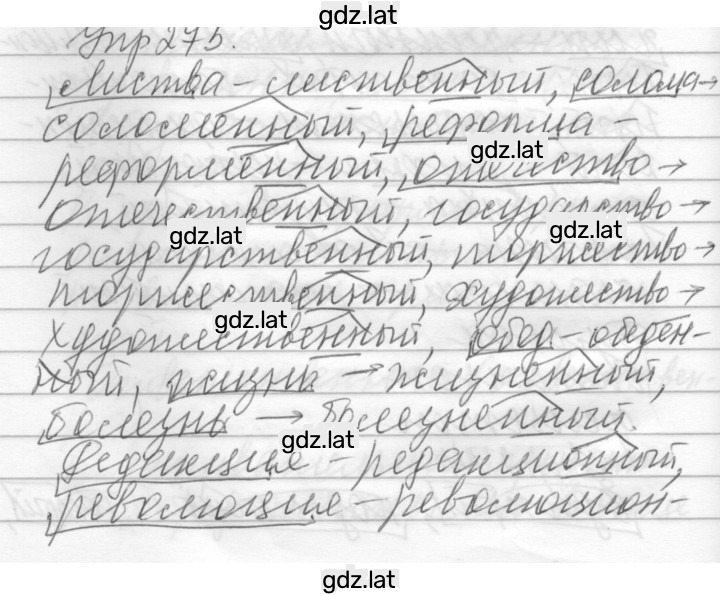 gdz.lat
Упр 275.
Листва – лиственный, солома →
соломенный, реформа –
gdz.lat
реформенный, отечество →
отечественный, государство →
gdz.lat gdz.lat
государственный, торжество →
торжественный, художество →
gdz.lat
художественный, обед – обеден-
ный, жизнь → жизненный,
болезнь → болезненный.
gdz.lat
Редакция – редакционный,
революция – революцион-
gdz.lat